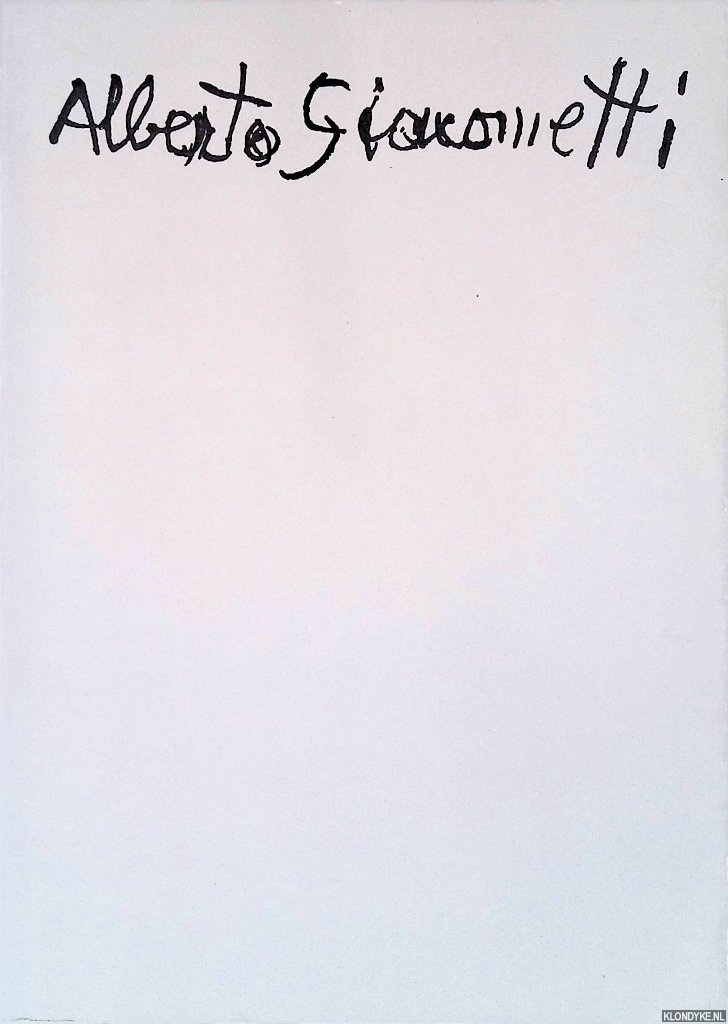 Alberto Giacometti
KLONDYKE.NL